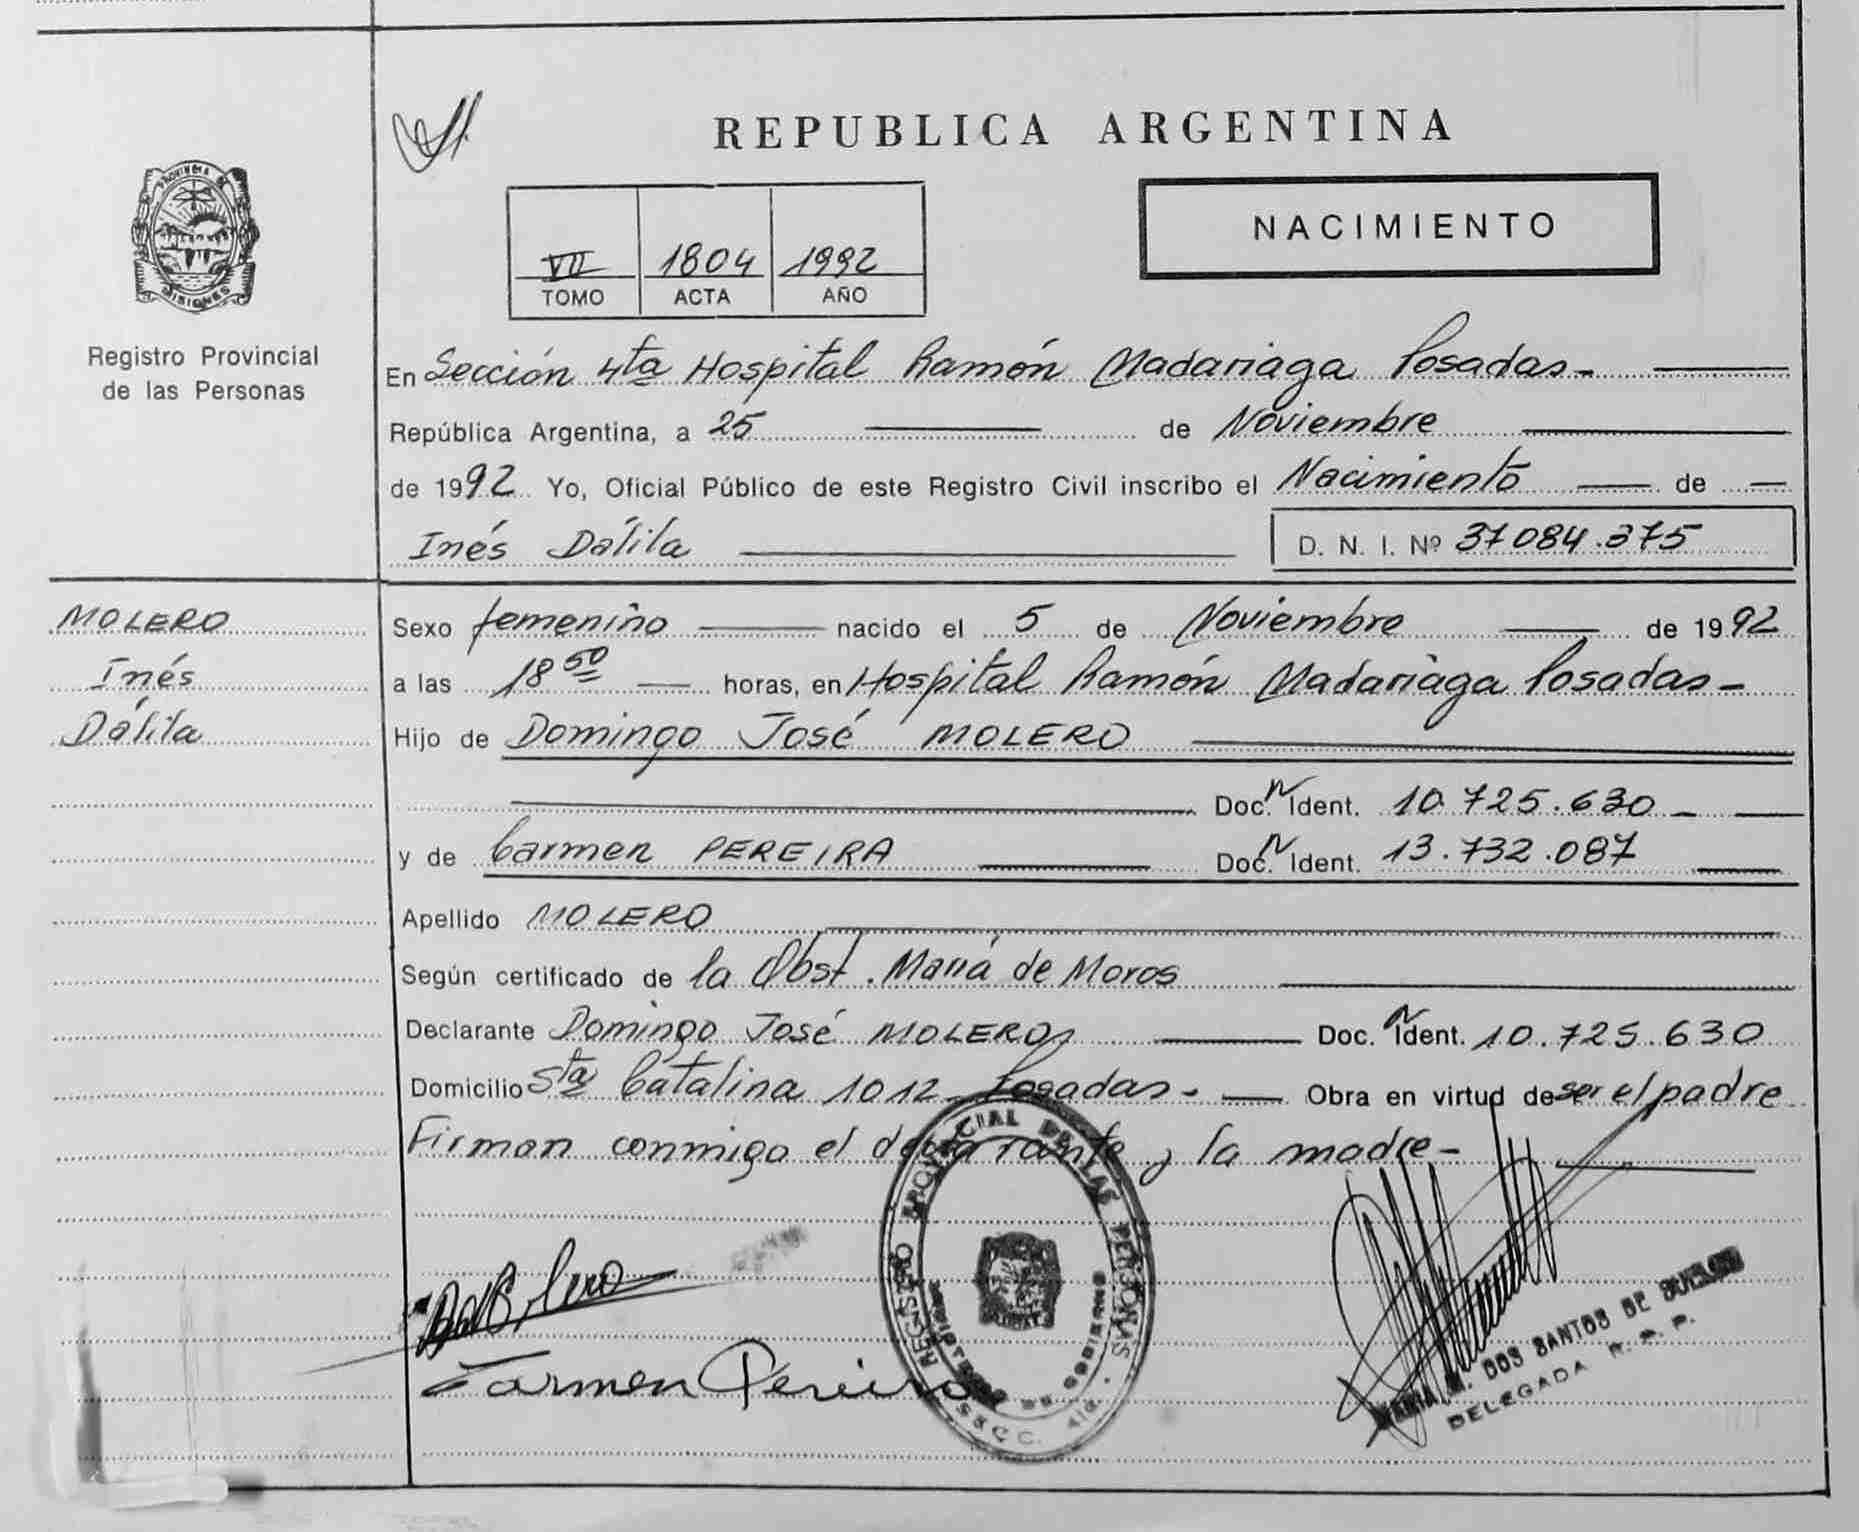 REPUBLICA ARGENTINA
NACIMIENTO
VII 1804 1992
TOMO ACTA AÑO
PROVINCIA DE
MISIONES
Registro Provincial
de las Personas
En Sección 4ta Hospital Ramón Madariaga Posadas-
República Argentina, a 25 de Noviembre
de 1992 Yo, Oficial Público de este Registro Civil inscribo el Nacimiento de
Inés Dálila D. N. I. Nº 37084.375
MOLERO
Inés
Dálila
Sexo femenino nacido el 5 de Noviembre de 1992
a las 18 50 horas, en Hospital Ramón Madariaga Posadas-
Hijo de Domingo José MOLERO
Doc. N Ident. 10.725.630
y de Carmen PEREIRA Doc. N Ident. 13.732.087
Apellido MOLERO
Según certificado de la Obst. María de Moros
Declarante Domingo José MOLERO Doc. N Ident. 10.725.630
Domicilio Sta Catalina 1012 Posadas- Obra en virtud de ser el padre
Firman conmigo el declarante y la madre-
Carmen Pereira
REGISTRO PROVINCIAL DE LAS PERSONAS
MINISTERIO DE GOBIERNO
MARIA M. DOS SANTOS DE
DELEGADA R. P. P.